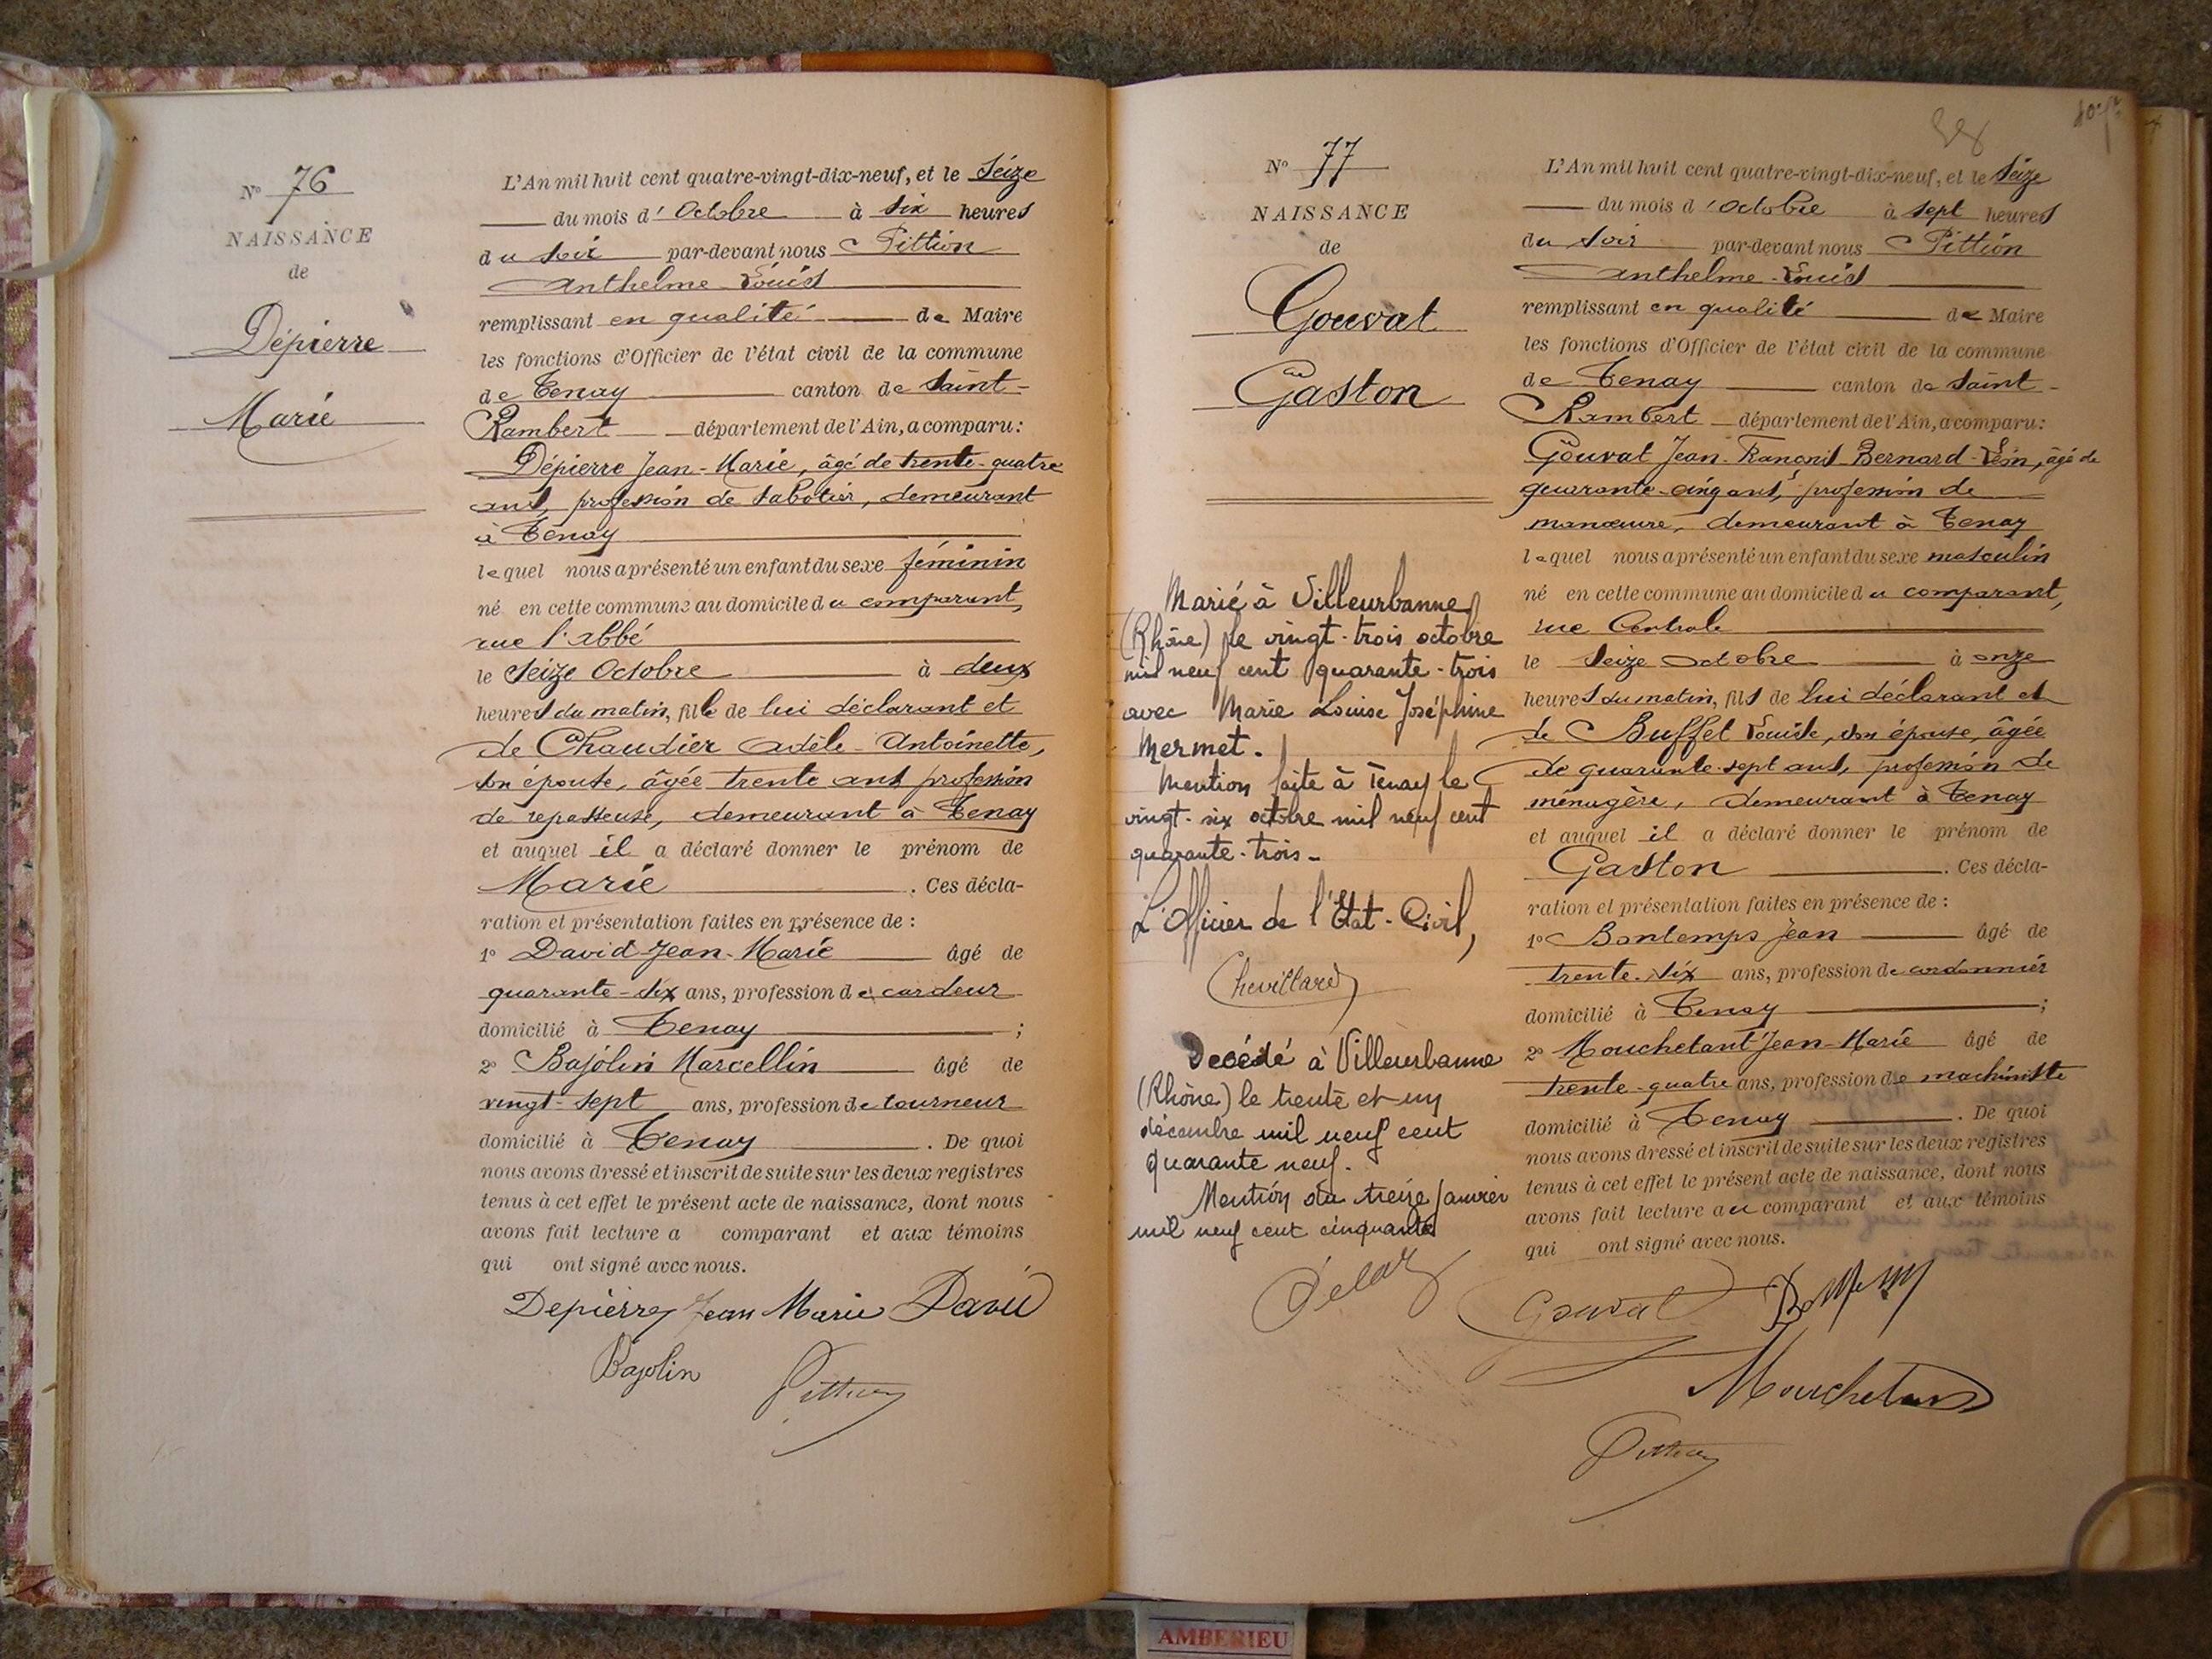 N° 76
NAISSANCE
de
Dépierre
Marie
L'An mil huit cent quatre-vingt-dix-neuf, et le Seize
du mois d'Octobre à Six heures
du Soir par-devant nous Pittion
Anthelme-Louis
remplissant en qualité de Maire
les fonctions d'Officier de l'état civil de la commune
de Tenay canton de Saint-
Rambert département de l'Ain, a comparu:
Dépierre Jean-Marie, âgé de trente-quatre
ans, profession de Sabotier, demeurant
à Tenay
lequel nous a présenté un enfant du sexe féminin
né en cette commune au domicile du comparant,
rue l'abbé
le Seize Octobre à deux
heures du matin, fille de lui déclarant et
de Chaudier Adèle-Antoinette,
son épouse, âgée trente ans profession
de repasseuse, demeurant à Tenay
et auquel il a déclaré donner le prénom de
Marie . Ces décla-
ration et présentation faites en présence de :
1° David Jean-Marie âgé de
quarante-six ans, profession de cardeur
domicilié à Tenay ;
2° Bajolin Marcellin âgé de
vingt-sept ans, profession de tourneur
domicilié à Tenay . De quoi
nous avons dressé et inscrit de suite sur les deux registres
tenus à cet effet le présent acte de naissance, dont nous
avons fait lecture a comparant et aux témoins
qui ont signé avec nous.
Depierre Jean Marie David
Bajolin Pittion
N° 77
NAISSANCE
de
Gouvat
Gaston
Marié à Villeurbanne
(Rhône) le vingt-trois octobre
mil neuf cent quarante-trois
avec Marie Louise Joséphine
Mermet.
Mention faite à Tenay le
vingt-six octobre mil neuf cent
quarante-trois.
L'Officier de l'Etat-Civil,
Chevillard
Decédé à Villeurbanne
(Rhône) le trente et un
décembre mil neuf cent
quarante neuf.
Mention du treize janvier
mil neuf cent cinquante
L'An mil huit cent quatre-vingt-dix-neuf, et le Seize
du mois d'Octobre à Sept heures
du Soir par-devant nous Pittion
Anthelme-Louis
remplissant en qualité de Maire
les fonctions d'Officier de l'état civil de la commune
de Tenay canton de Saint-
Rambert département de l'Ain, a comparu:
Gouvat Jean-François-Bernard-Léon, âgé de
quarante-cinq ans, profession de
manœuvre, demeurant à Tenay
lequel nous a présenté un enfant du sexe masculin
né en cette commune au domicile du comparant,
rue Centrale
le Seize Octobre à onze
heures du matin, fils de lui déclarant et
de Buffet Louise, son épouse, âgée
de quarante-sept ans, profession de
ménagère, demeurant à Tenay
et auquel il a déclaré donner le prénom de
Gaston . Ces décla-
ration et présentation faites en présence de :
1° Bontemps Jean âgé de
trente-six ans, profession de cordonnier
domicilié à Tenay ;
2° Mouchetant Jean-Marie âgé de
trente-quatre ans, profession de machiniste
domicilié à Tenay . De quoi
nous avons dressé et inscrit de suite sur les deux registres
tenus à cet effet le présent acte de naissance, dont nous
avons fait lecture au comparant et aux témoins
qui ont signé avec nous.
Gouvat
Mouchetant
Pittion
AMBERIEU